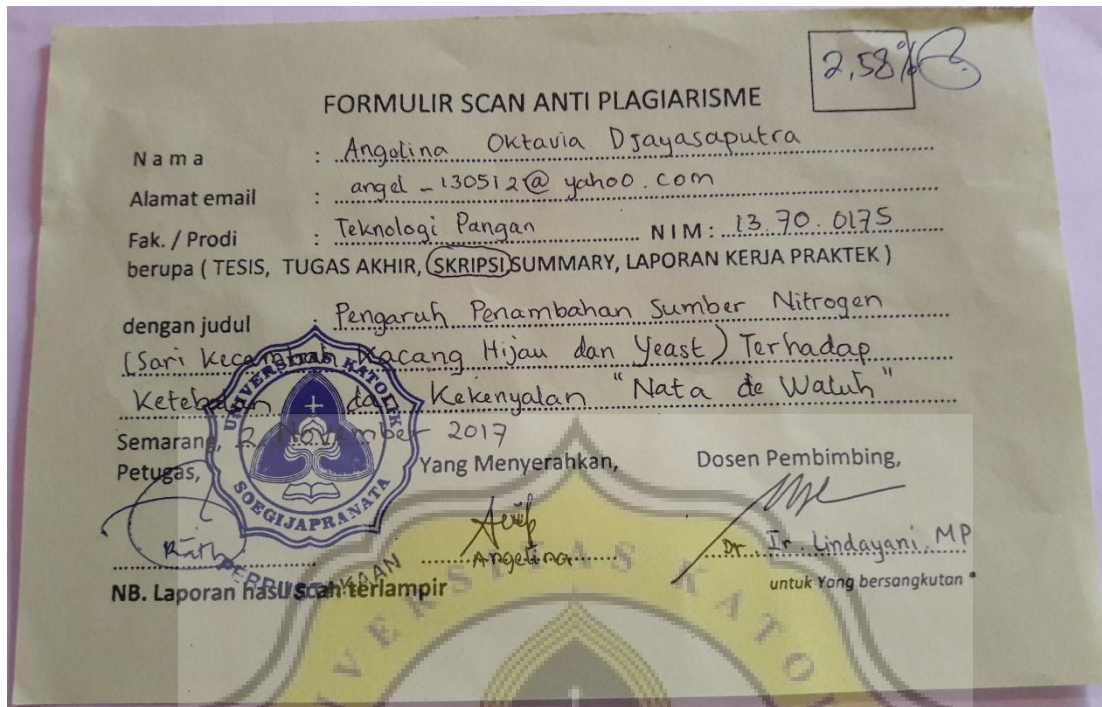 2,58%
FORMULIR SCAN ANTI PLAGIARISME
Nama : Angelina Oktavia Djayasaputra
Alamat email : angel_130512@yahoo.com
Fak. / Prodi : Teknologi Pangan NIM : 13.70.0175
berupa ( TESIS, TUGAS AKHIR, SKRIPSI, SUMMARY, LAPORAN KERJA PRAKTEK )
dengan judul : Pengaruh Penambahan Sumber Nitrogen
(Sari Kecambah Kacang Hijau dan Yeast) Terhadap
Ketebalan dan Kekenyalan "Nata de Waluh"
Semarang, 2 November 2017
Petugas, Yang Menyerahkan, Dosen Pembimbing,
UNIVERSITAS KATOLIK
SOEGIJAPRANATA
PERPUSTAKAAN
Angelina Dr. Ir. Lindayani. MP
NB. Laporan hasil scan terlampir untuk Yang bersangkutan *
ERSITAS KATO